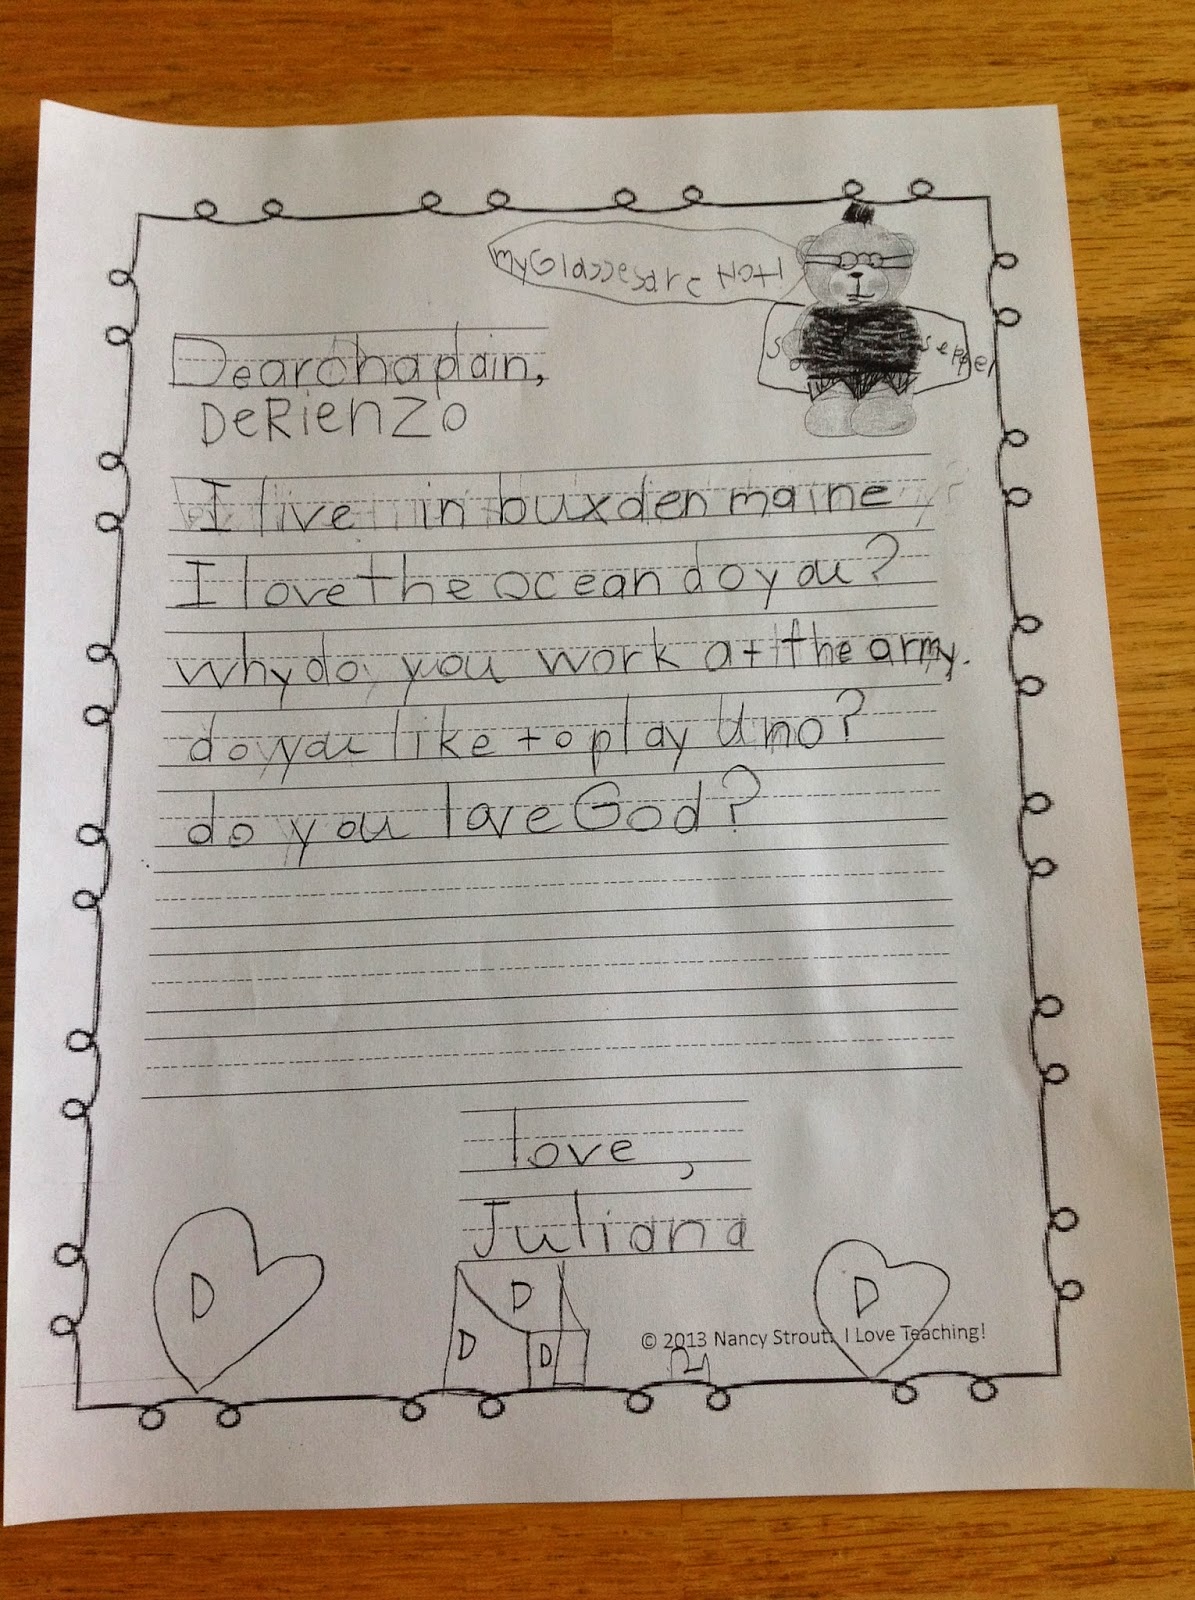 my Glasses are HOt!
Dear chaplain,
DeRienzo
I live in buxden maine
I love the ocean do you?
why do you work at the army.
do you like to play Uno?
do you love God?
love,
Juliana
D D
D D D
© 2013 Nancy Strout. I Love Teaching!